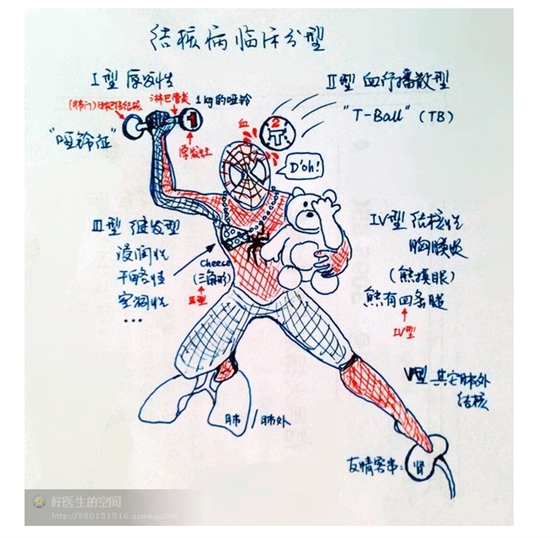 结核病临床分型
I型 原发性
II型 血行播散型
(肺门)淋巴结结核
淋巴管炎
1kg的哑铃
"T-Ball"(TB)
"哑铃征"
1
原发灶
血
2
T
D'oh!
III型 继发型
浸润性
干酪性
空洞性
...
Cheese
(三角形)
III型
IV型 结核性
胸膜炎
(熊摸眼)
熊有四条腿
IV型
V型 其它肺外
结核
肺/肺外
友情客串:肾
好医生的空间